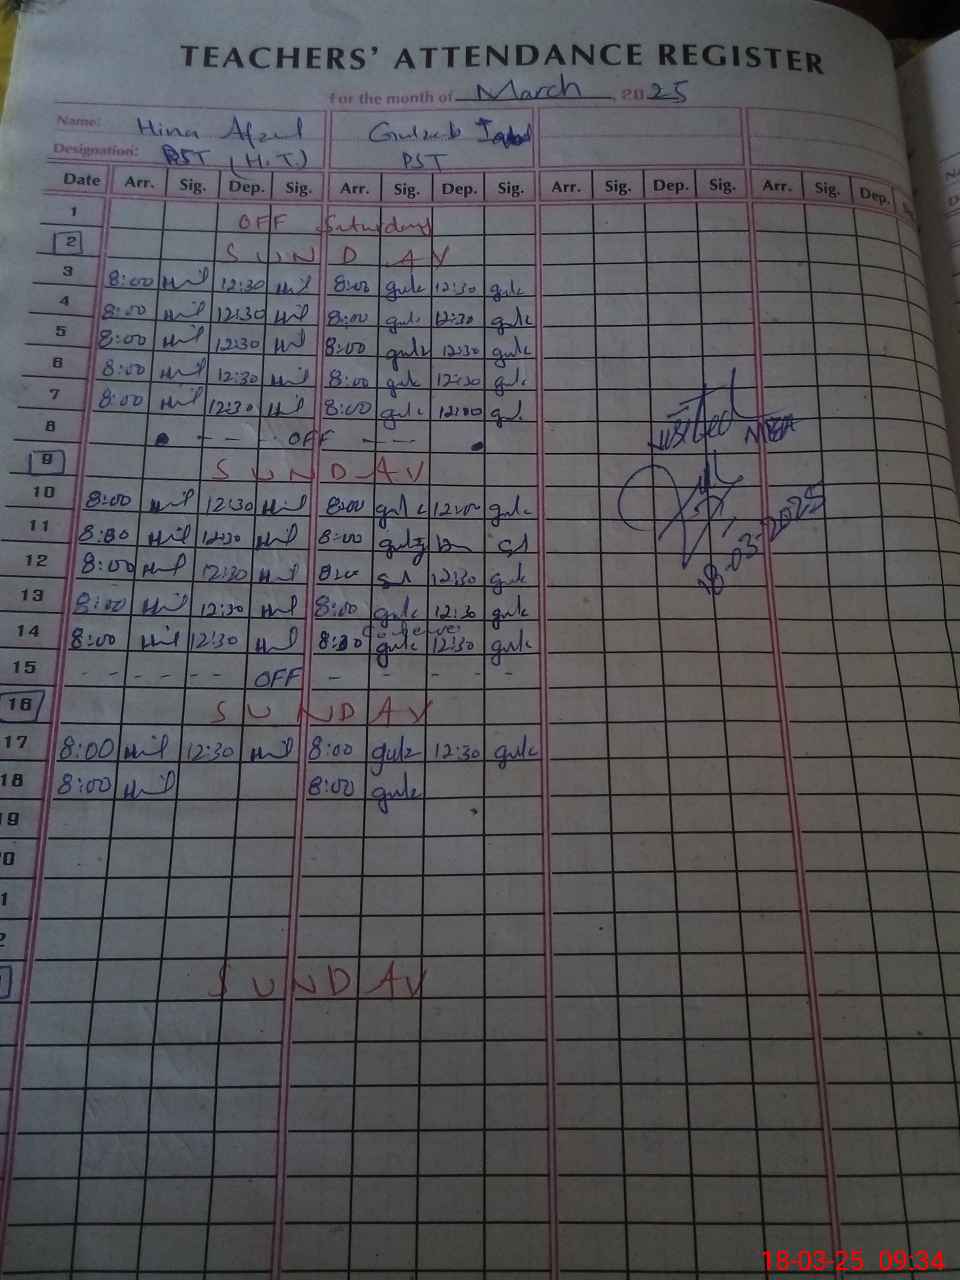 TEACHERS' ATTENDANCE REGISTER
For the month of March, 2025
Name: Hina Afzal Gulzeb Iqbal
Designation: PST (H.T.) PST
Date Arr. Sig. Dep. Sig. Arr. Sig. Dep. Sig. Arr. Sig. Dep. Sig. Arr. Sig. Dep.
1 OFF Saturday
2 SUNDAY
3 8:00 12:30 8:00 gulz 12:30 gulz
4 8:00 12:30 8:00 gulz 12:30 gulz
5 8:00 12:30 8:00 gulz 12:30 gulz
6 8:00 12:30 8:00 gulz 12:30 gulz
7 8:00 12:30 8:00 gulz 12:00 gul
8 - - - OFF - - -
9 SUNDAY
10 8:00 12:30 8:00 gulz 12:00 gulz
11 8:00 12:30 8:00 gulz
12 8:00 12:30 800 12:30 gulz
13 8:00 12:30 8:00 gulz 12:30 gulz
14 8:00 12:30 8:30 gulz 12:30 gulz
15 - - - - - OFF - - - -
16 SUNDAY
17 8:00 12:30 8:00 gulz 12:30 gulz
18 8:00 8:00 gulz
19
0
1
2
SUNDAY
Visited MEA
18-03-2025
18-03-25 09:34